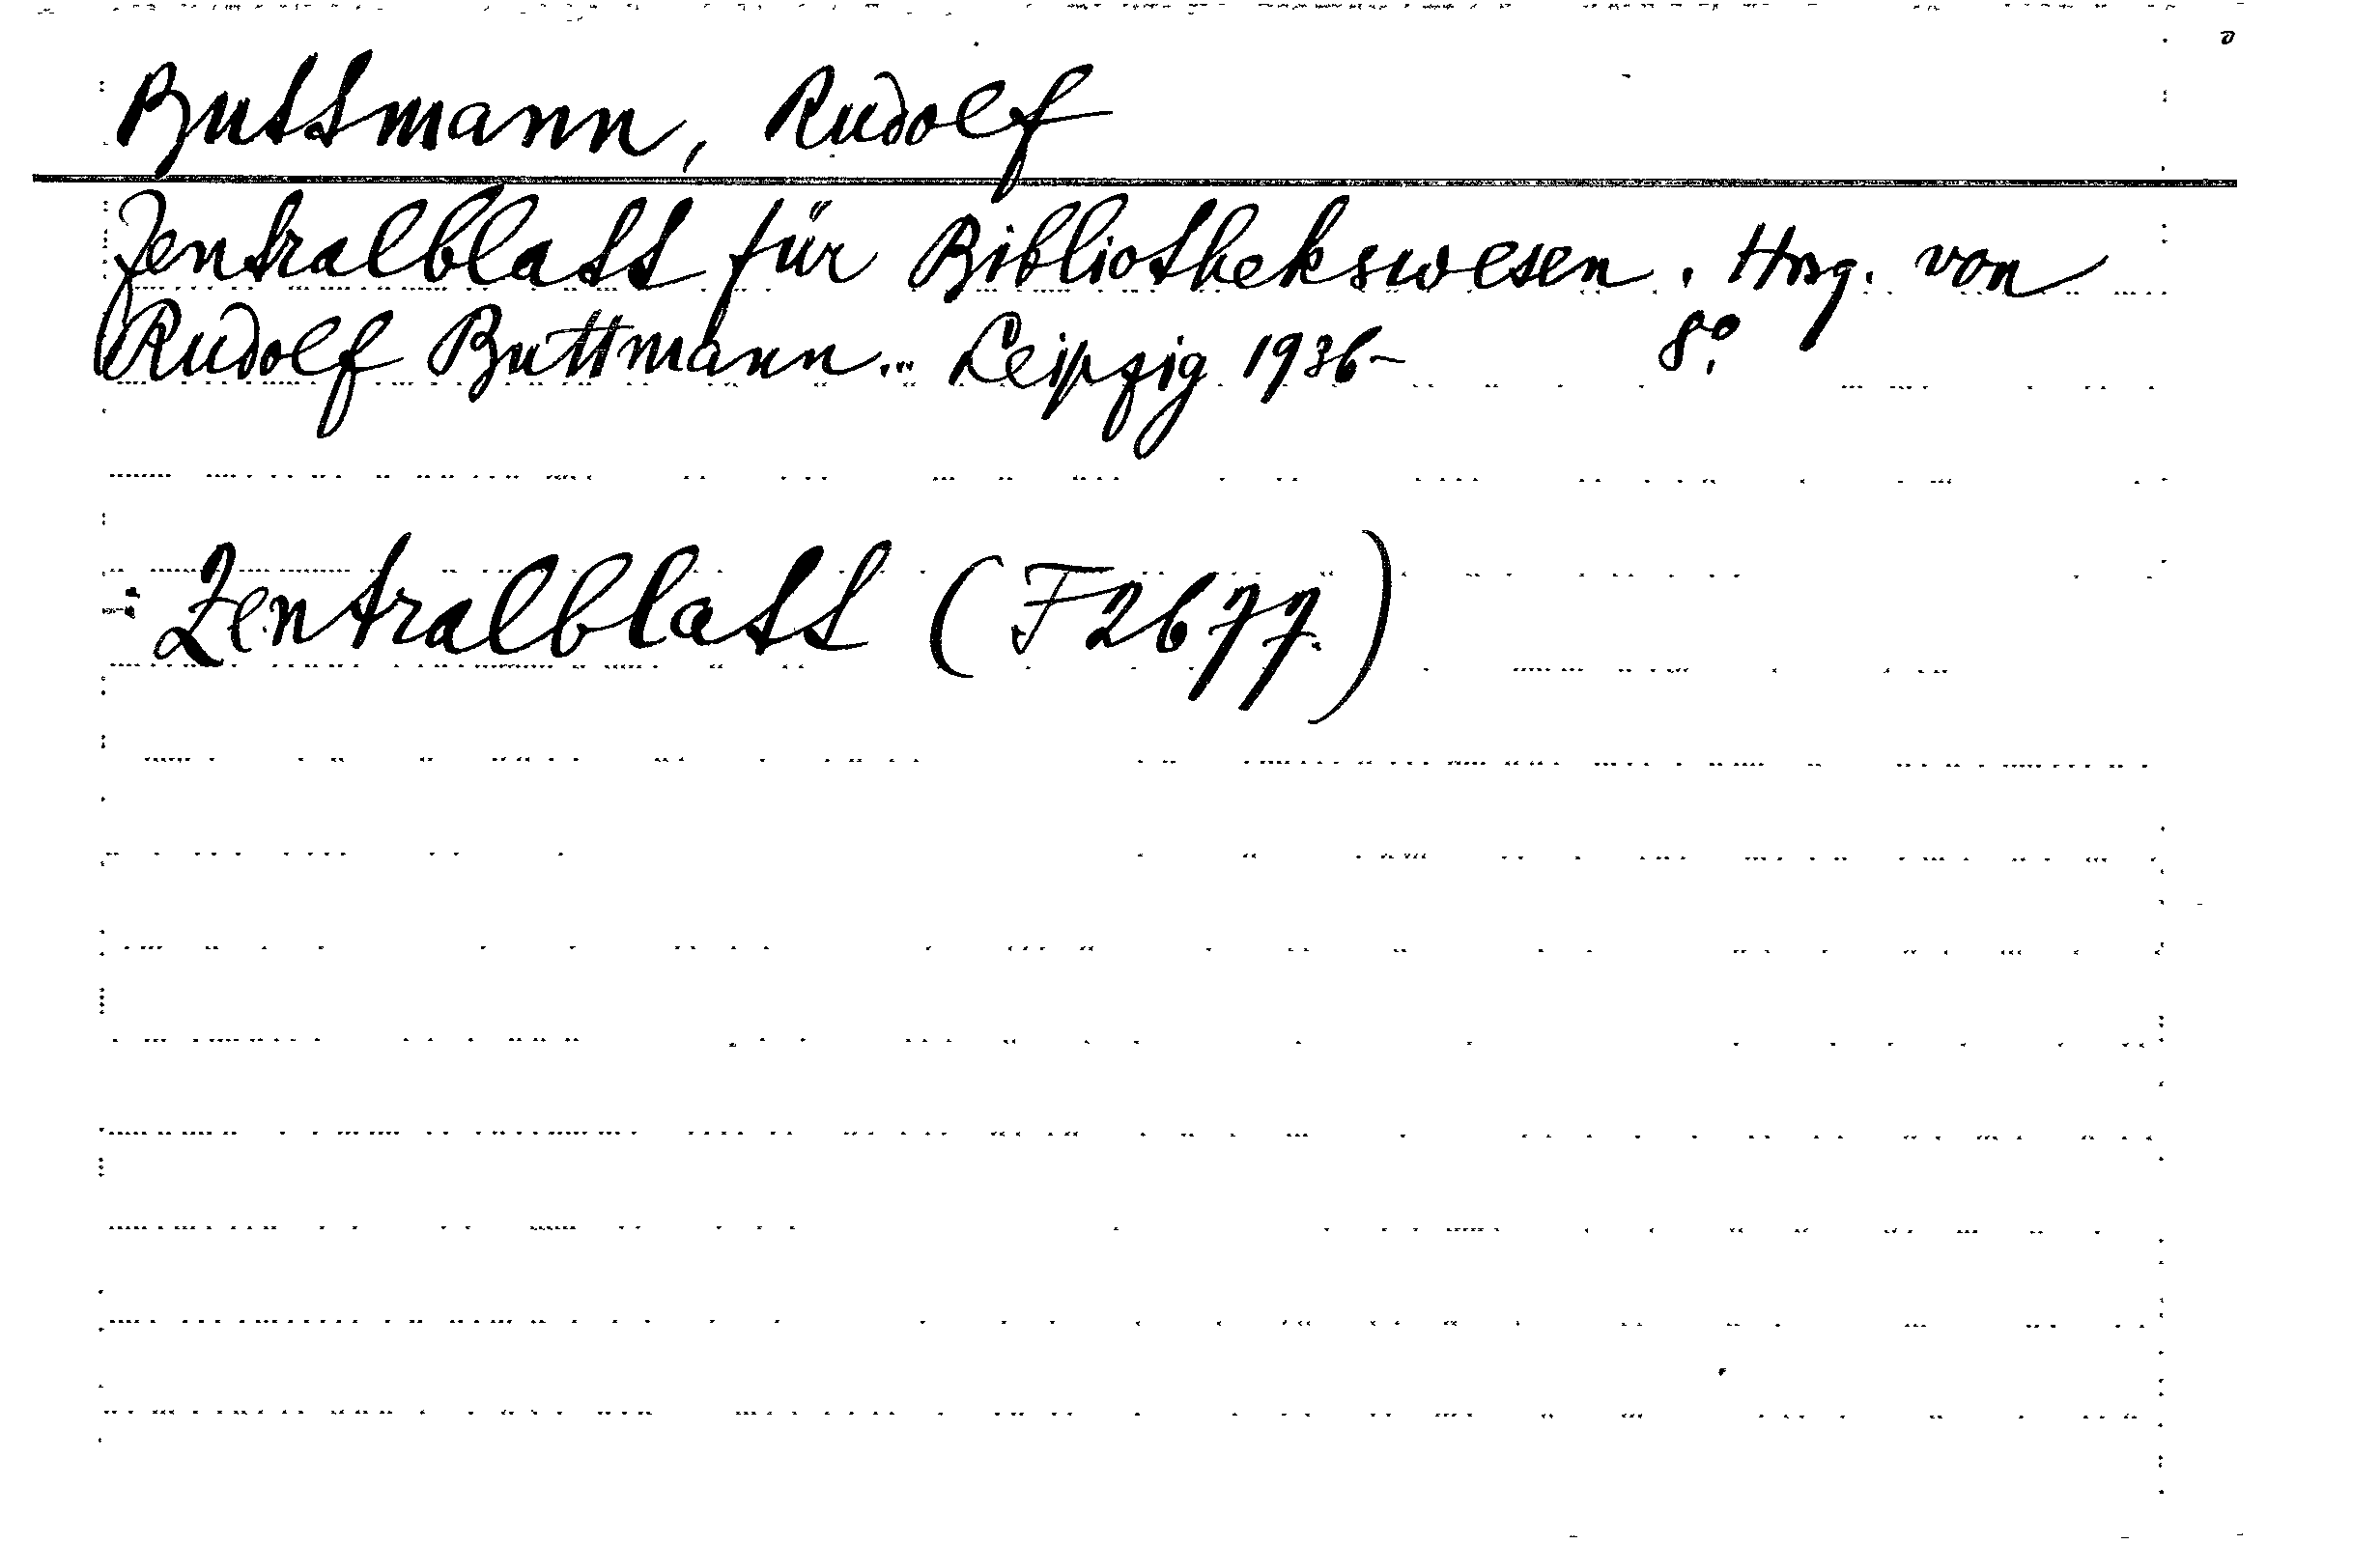 Buttmann, Rudolf
Zentralblatt für Bibliothekswesen. Hrsg. von
Rudolf Buttmann... Leipzig 1936- 8°.
: Zentralblatt (F2677.)